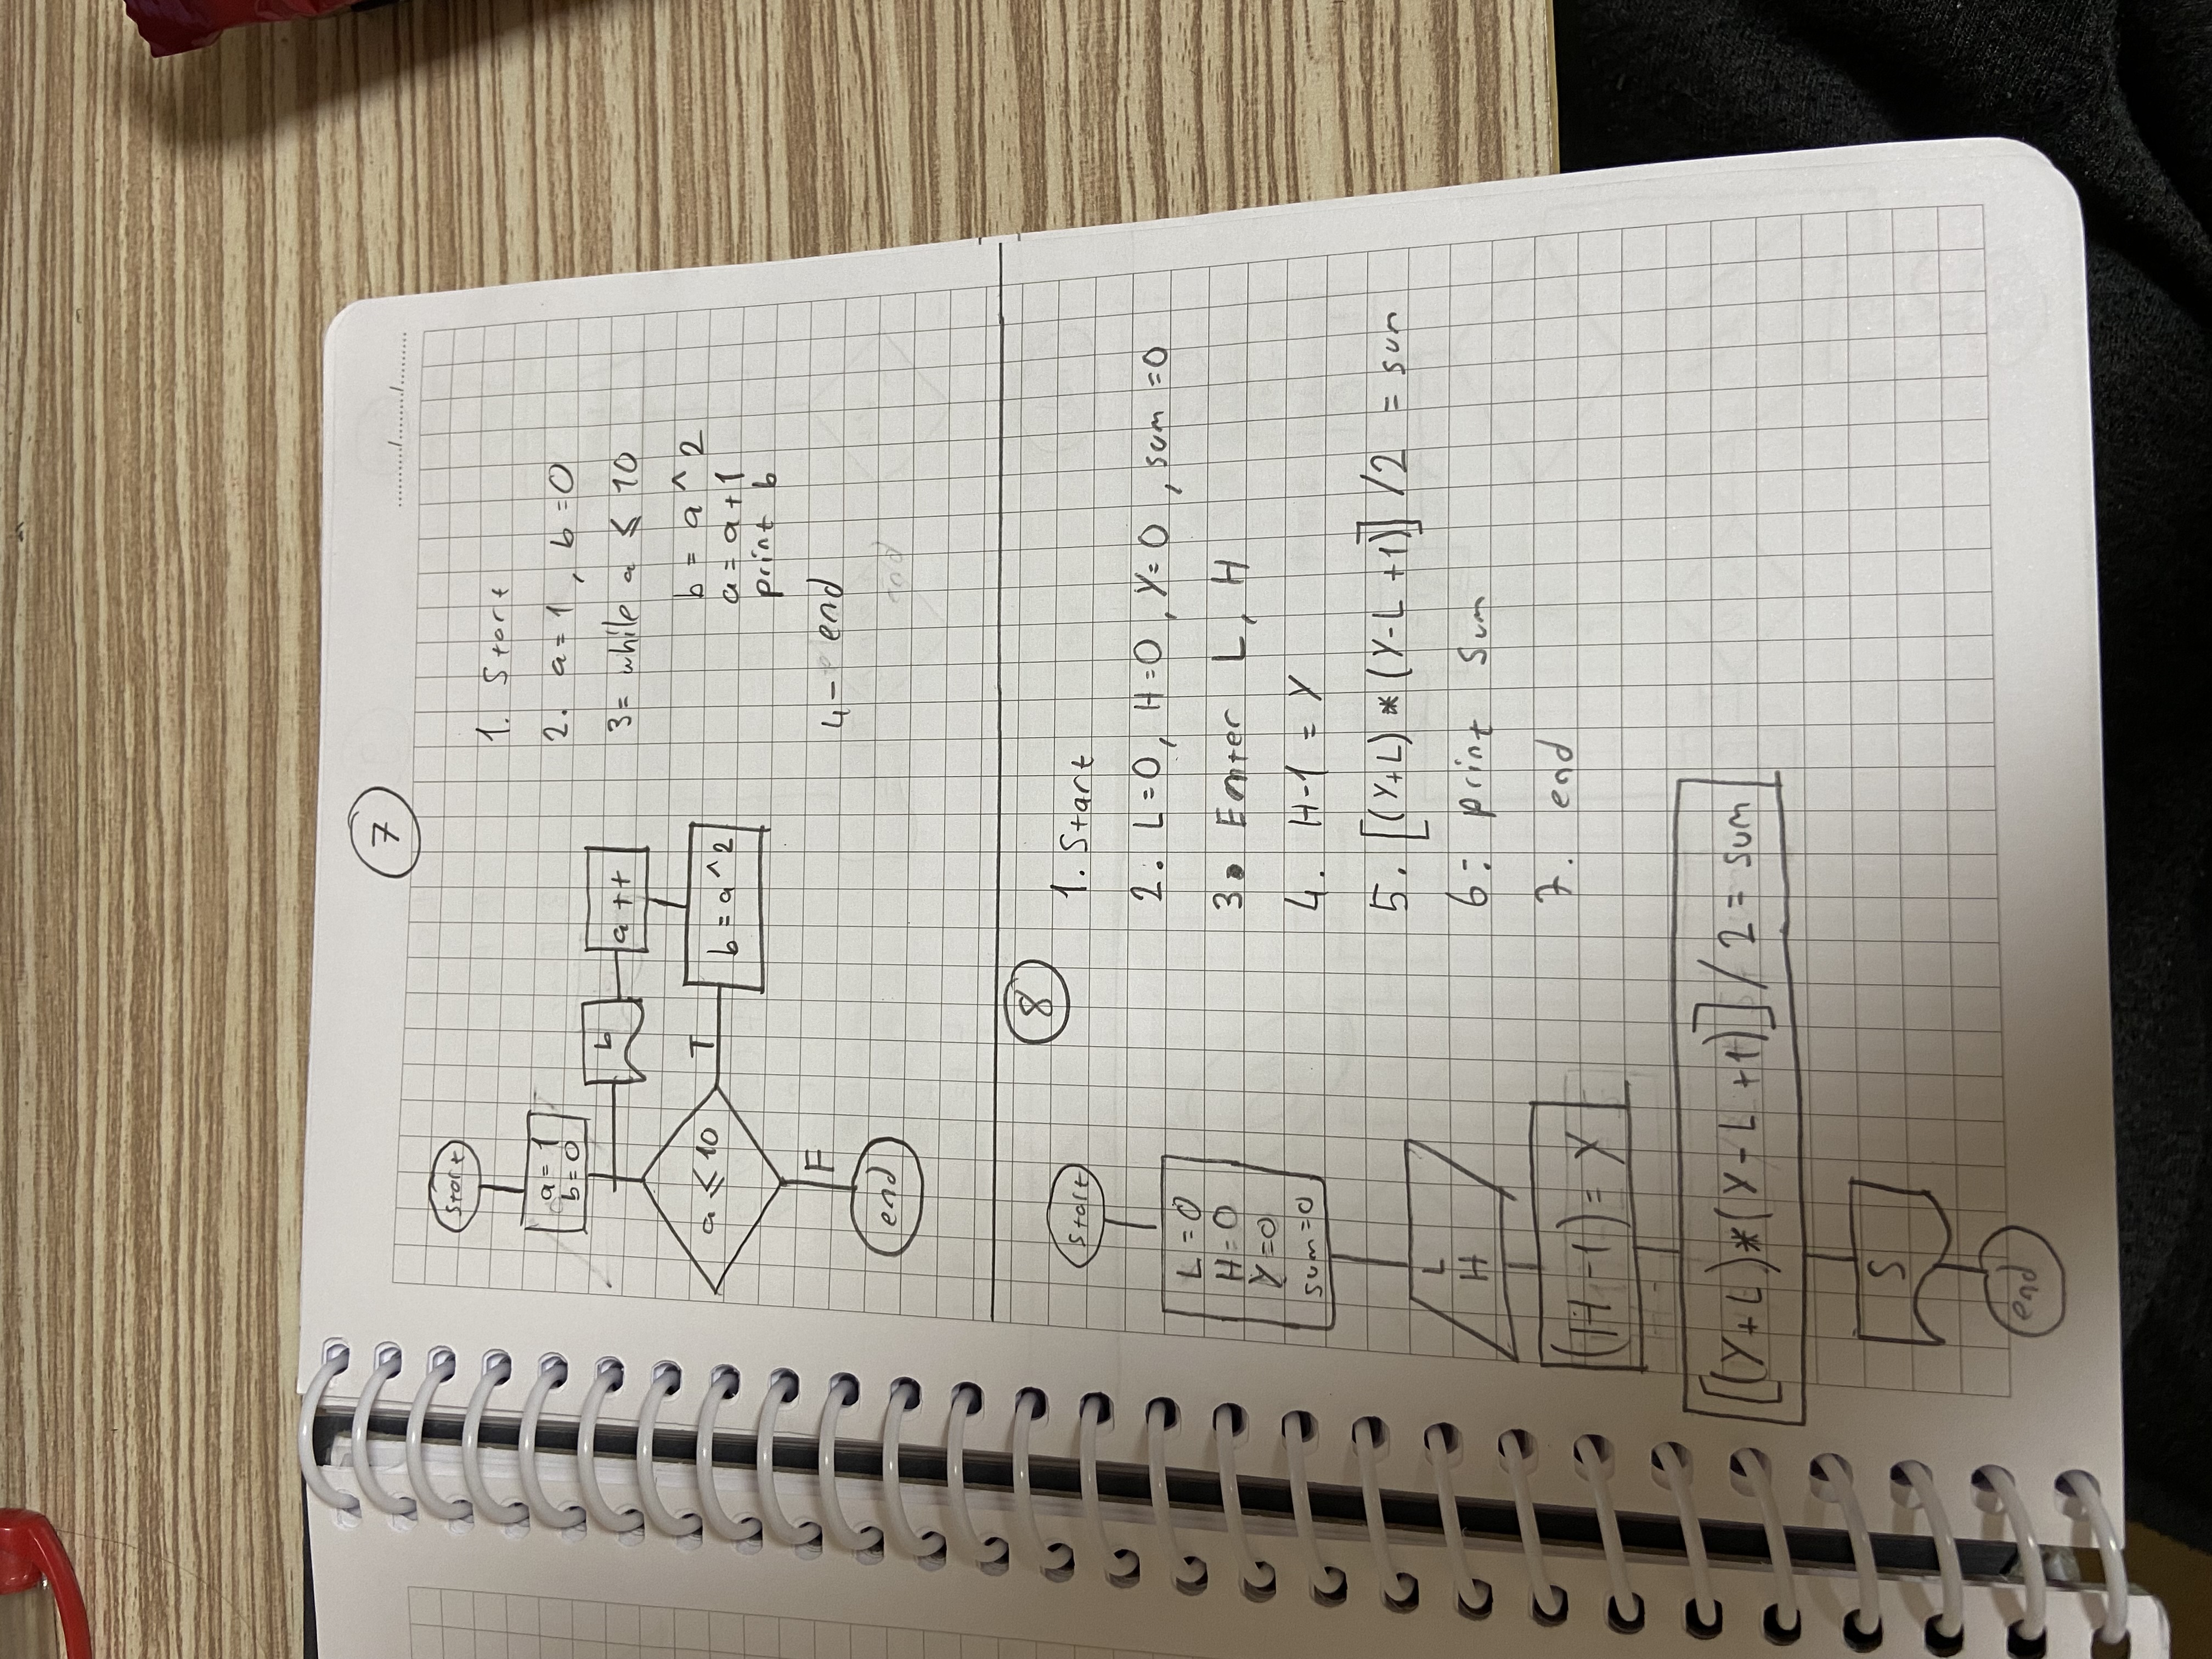 7
........../......../.........
Start
a = 1
b = 0
b
a ++
a ≤ 10
T
b = a ^ 2
F
end
1. Start
2. a = 1 , b = 0
3= while a ≤ 10
b = a ^ 2
a = a + 1
print b
4- end
end
8
Start
L = 0
H = 0
Y = 0
sum = 0
L
H
(H - 1) = Y
[(Y + L) * (Y - L + 1)] / 2 = sum
S
end
1. Start
2. L = 0 , H = 0 , Y = 0 , sum = 0
3. Enter L, H
4. H - 1 = Y
5. [(Y + L) * (Y - L + 1)] / 2 = sum
6: print Sum
7. end